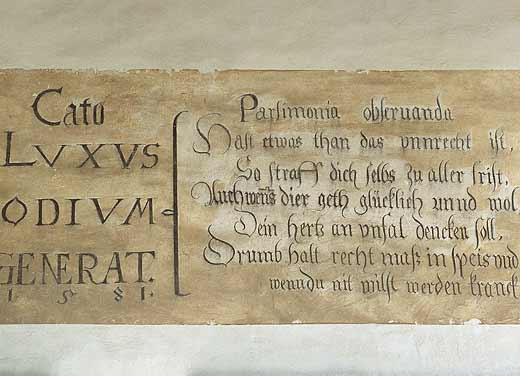 Cato
LVXVS
ODIVM
GENERAT.
1 5 8 1.
Parsimonia obseruanda
Hast etwas than das vnnrecht ist,
So straff dich selbs zu aller frist,
Auch wens dier geth glücklich vnnd wol,
Dein hertz an vnfal dencken soll,
Drumb halt recht maß in speis vnd
wenn du nit wilst werden kranck